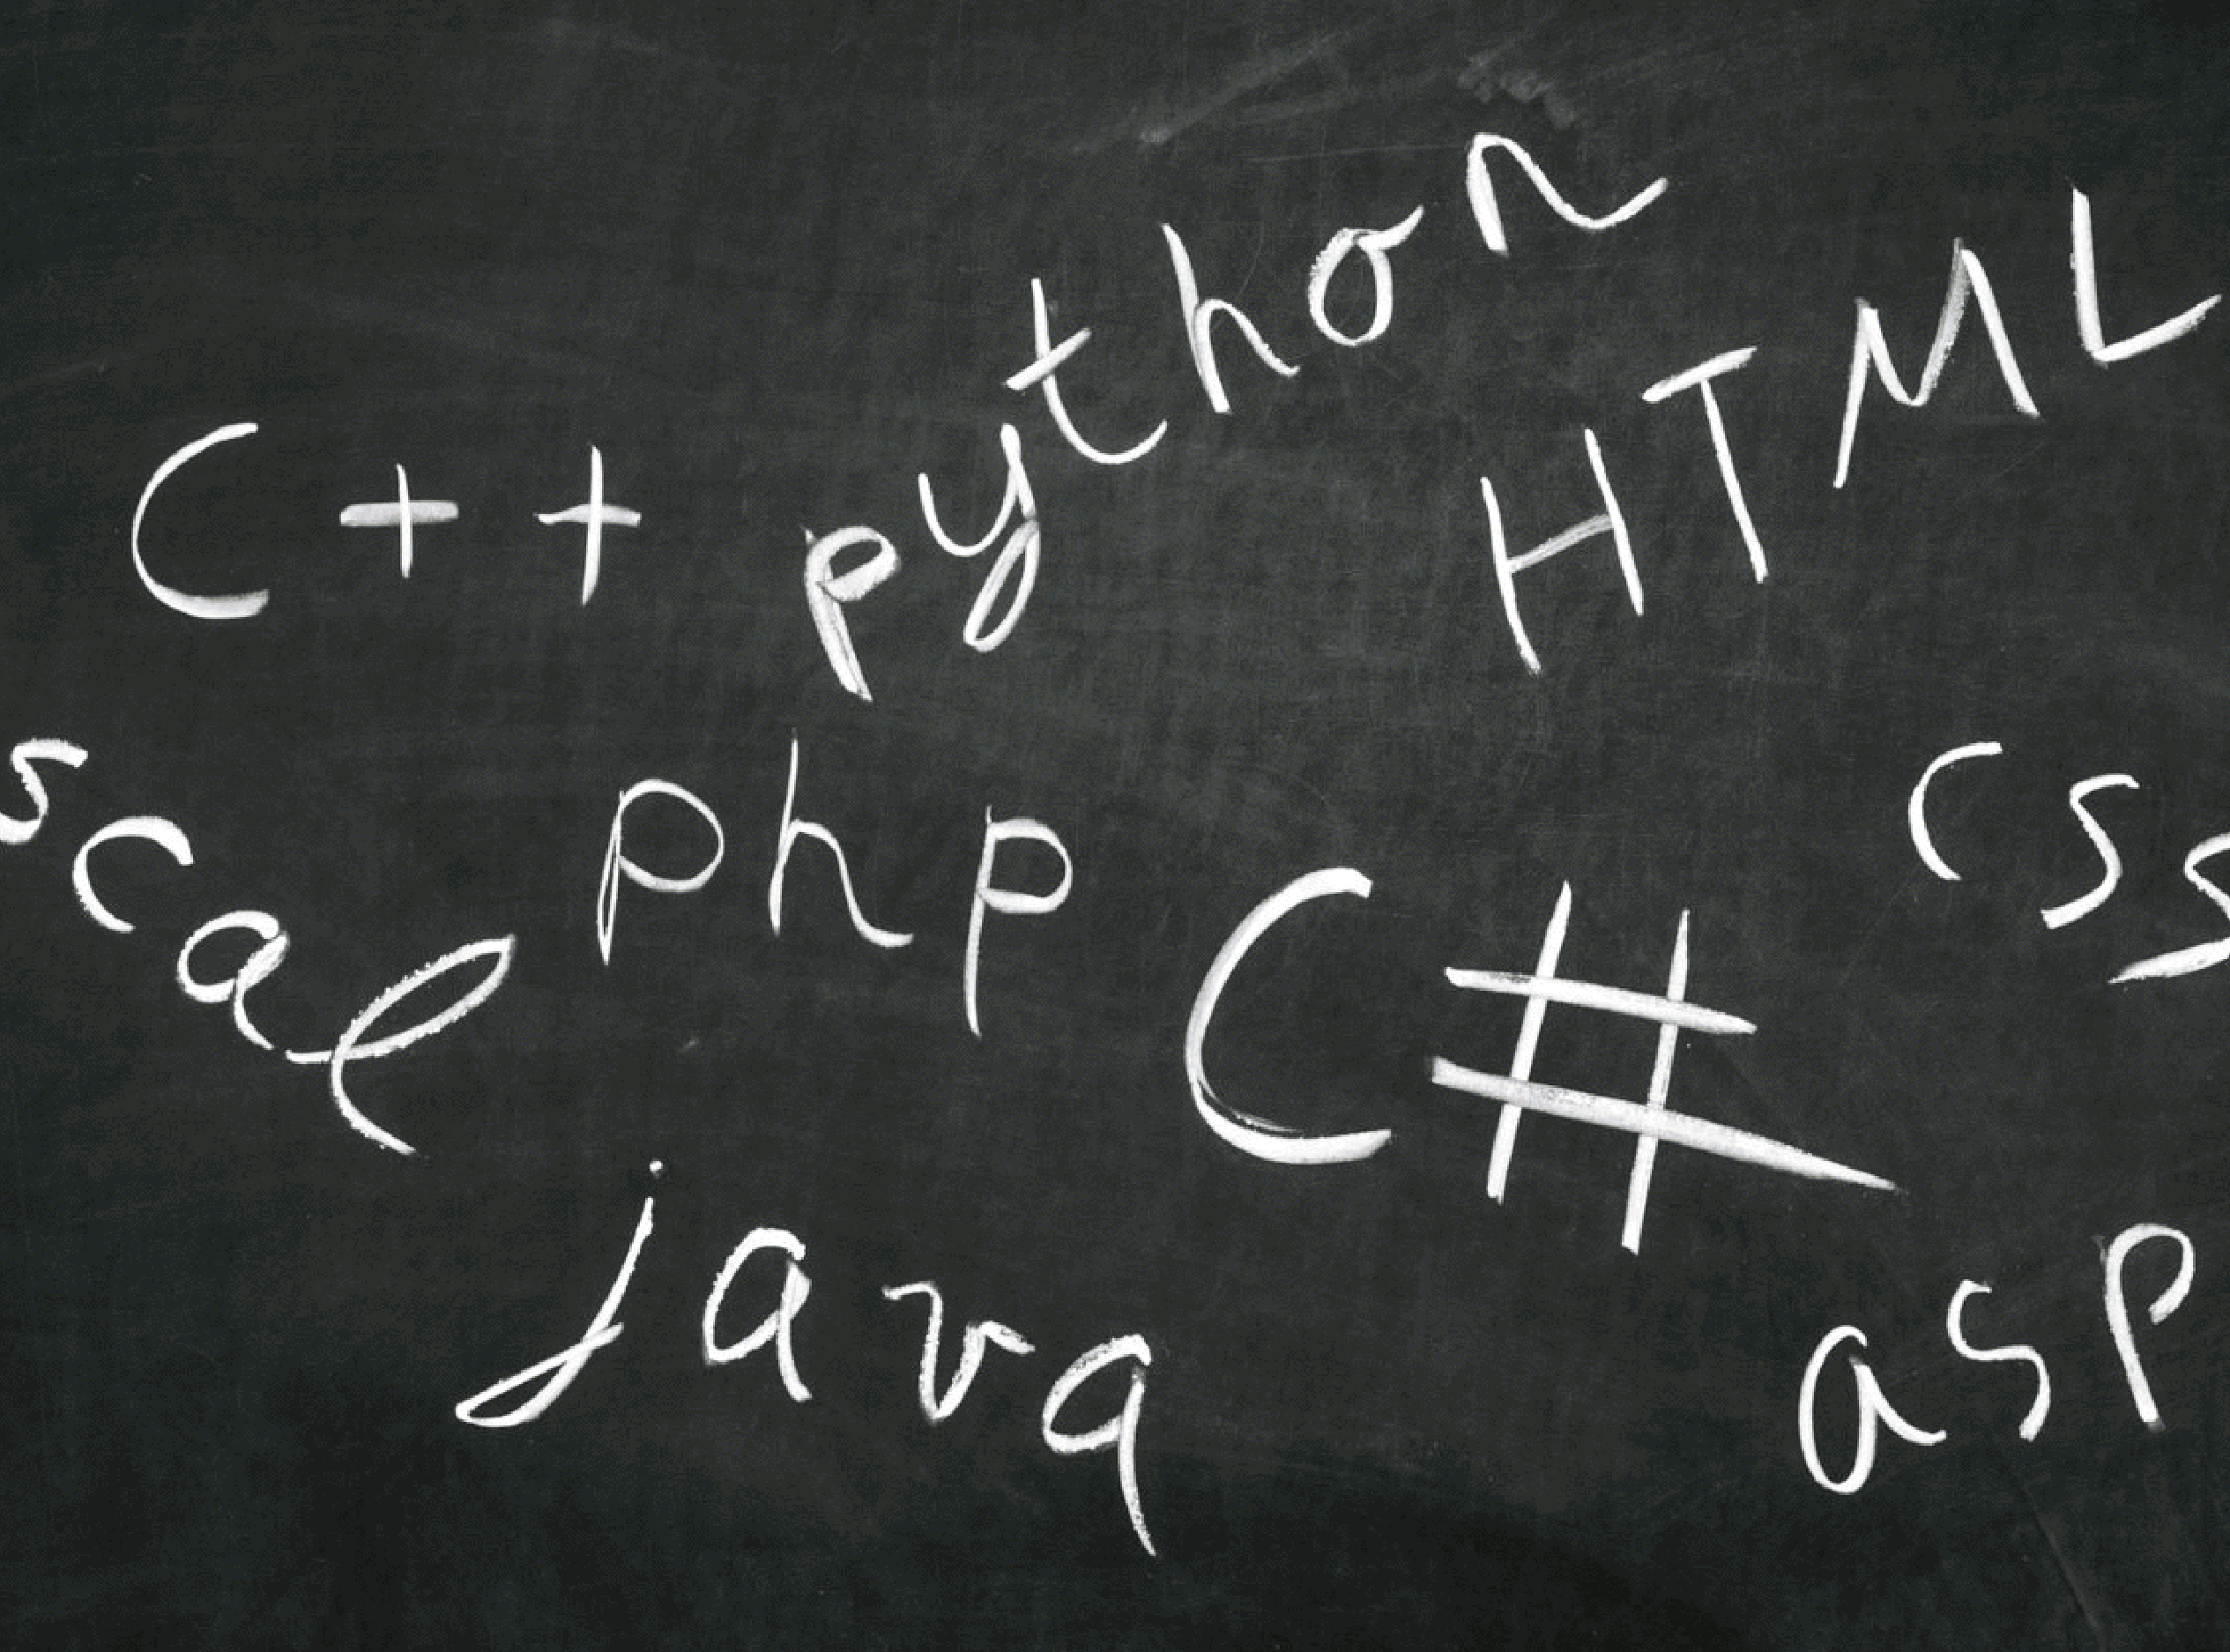 C++
python
HTML
scal
php
C#
css
java
asp